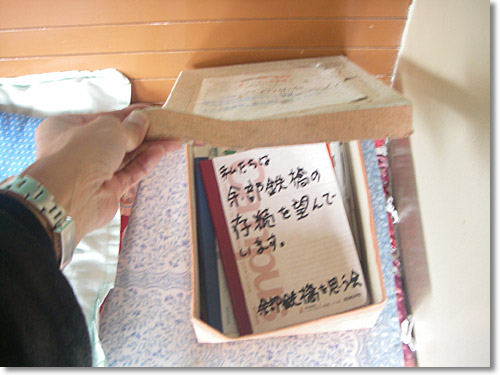 私たちは
余部鉄橋の
存続を望んで
います。
余部鉄橋を思う会